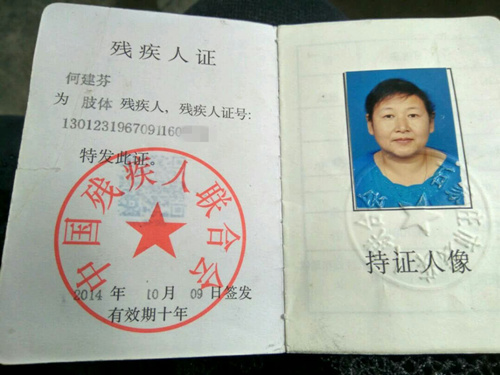 残疾人证
何建芬
为 肢体 残疾人，残疾人证号：
1301231967091160
特发此证。
中国残疾人联合会
2014 年 10 月 09 日签发
有效期十年
持证人像